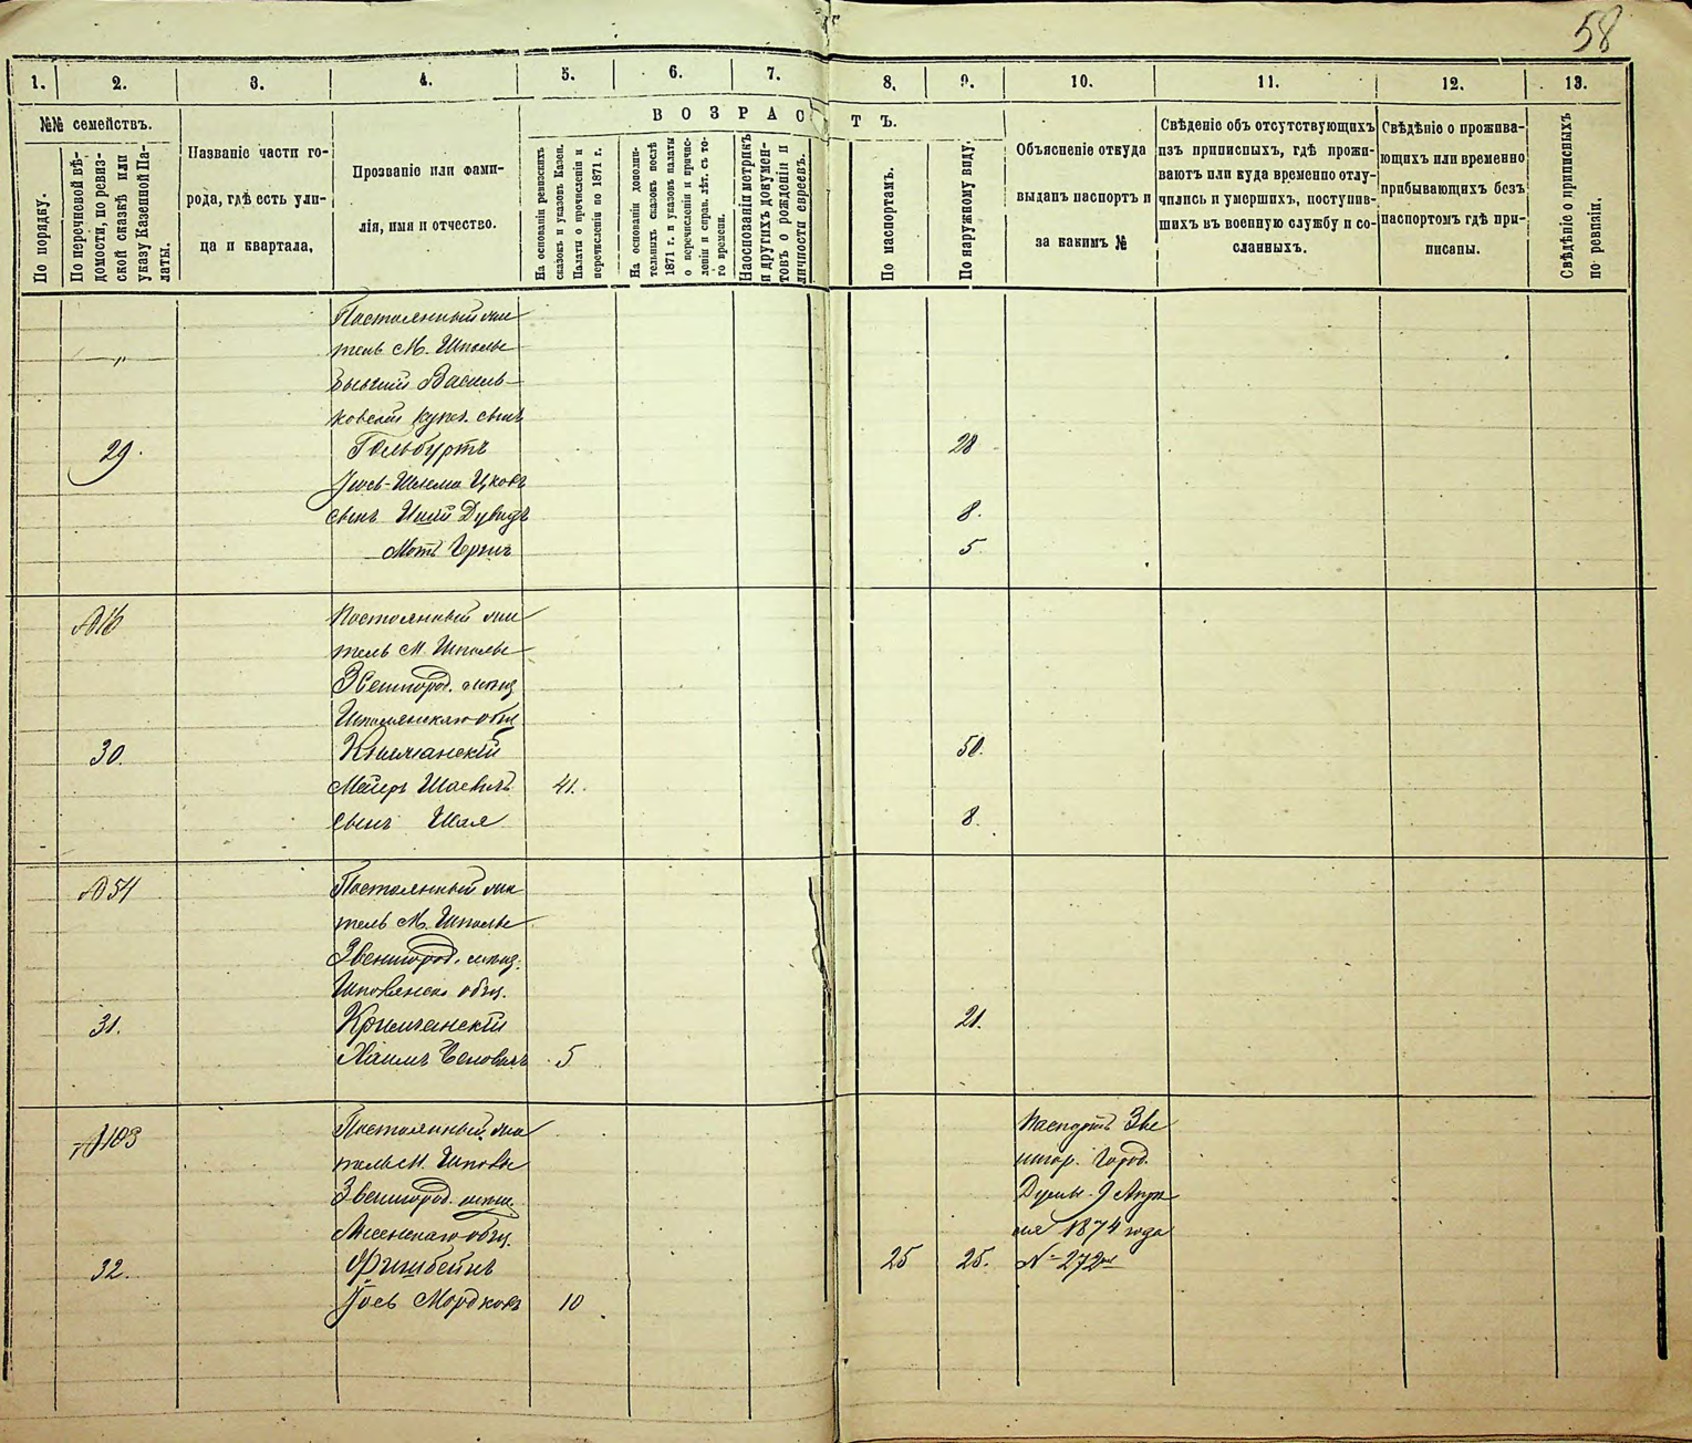 58
1. 2. 3. 4. 5. 6. 7. 8. 9. 10. 11. 12. 13.
№№ семействъ.
По порядку.
По перечневой вѣ-
домости, по ревиз-
ской сказкѣ или
указу Казенной Па-
латы.
Названіе части го-
рода, гдѣ есть ули-
ца и квартала,
Прозваніе или фами-
лія, имя и отчество.
ВОЗРАСТЪ.
На основаніи ревизскихъ
сказокъ и указовъ Казен.
Палаты о причисленіи и
перечисленіи по 1871 г.
На основаніи дополни-
тельныхъ сказокъ послѣ
1871 г. и указовъ палаты
о перечисленіи и причис-
леніи и справ. лѣт. съ то-
го времени.
На основаніи метрикъ
и другихъ докумен-
товъ о рожденіи и
личности евреевъ.
По паспортамъ.
По наружному виду.
Объясненіе откуда
выданъ паспортъ и
за какимъ №
Свѣденіе объ отсутствующихъ
изъ приписныхъ, гдѣ прожи-
ваютъ или куда временно отлу-
чились и умершихъ, поступив-
шихъ въ военную службу и со-
сланныхъ.
Свѣдѣніе о прожива-
ющихъ или временно
прибывающихъ безъ
паспортомъ гдѣ при-
писаны.
Свѣдѣніе о приписныхъ
по ревизіи.
Постоянный жи
тель М. Шполы
Бывшій Василь-
ковскій купеч. сынъ
29. Гольбуртъ 28
Іось-Шлема Ицковъ
сынъ Дувидъ 8.
Мот 5
Постоянный жи
тель М. Шполы
Звенигород. мѣщ
Шполянскаго общ
30. 50.
Меиръ Шаевичъ 41.
сынъ Шая 8.
№ 54 Постоянный жи
тель М. Шполы
Звенигород. мѣщ.
Шполянска общ.
31. Кримчанскій 21.
Хаимъ 5
№ 103 Постоянный жи Паспортъ Зве
тель М. Шполы нигор. Город.
Звенигород. мѣщ. Думы 9 Апрѣ
Лисянскаго общ. ля 1874 года
32. Фишбейнъ 25 25. № 272
Іось Мордковъ 10